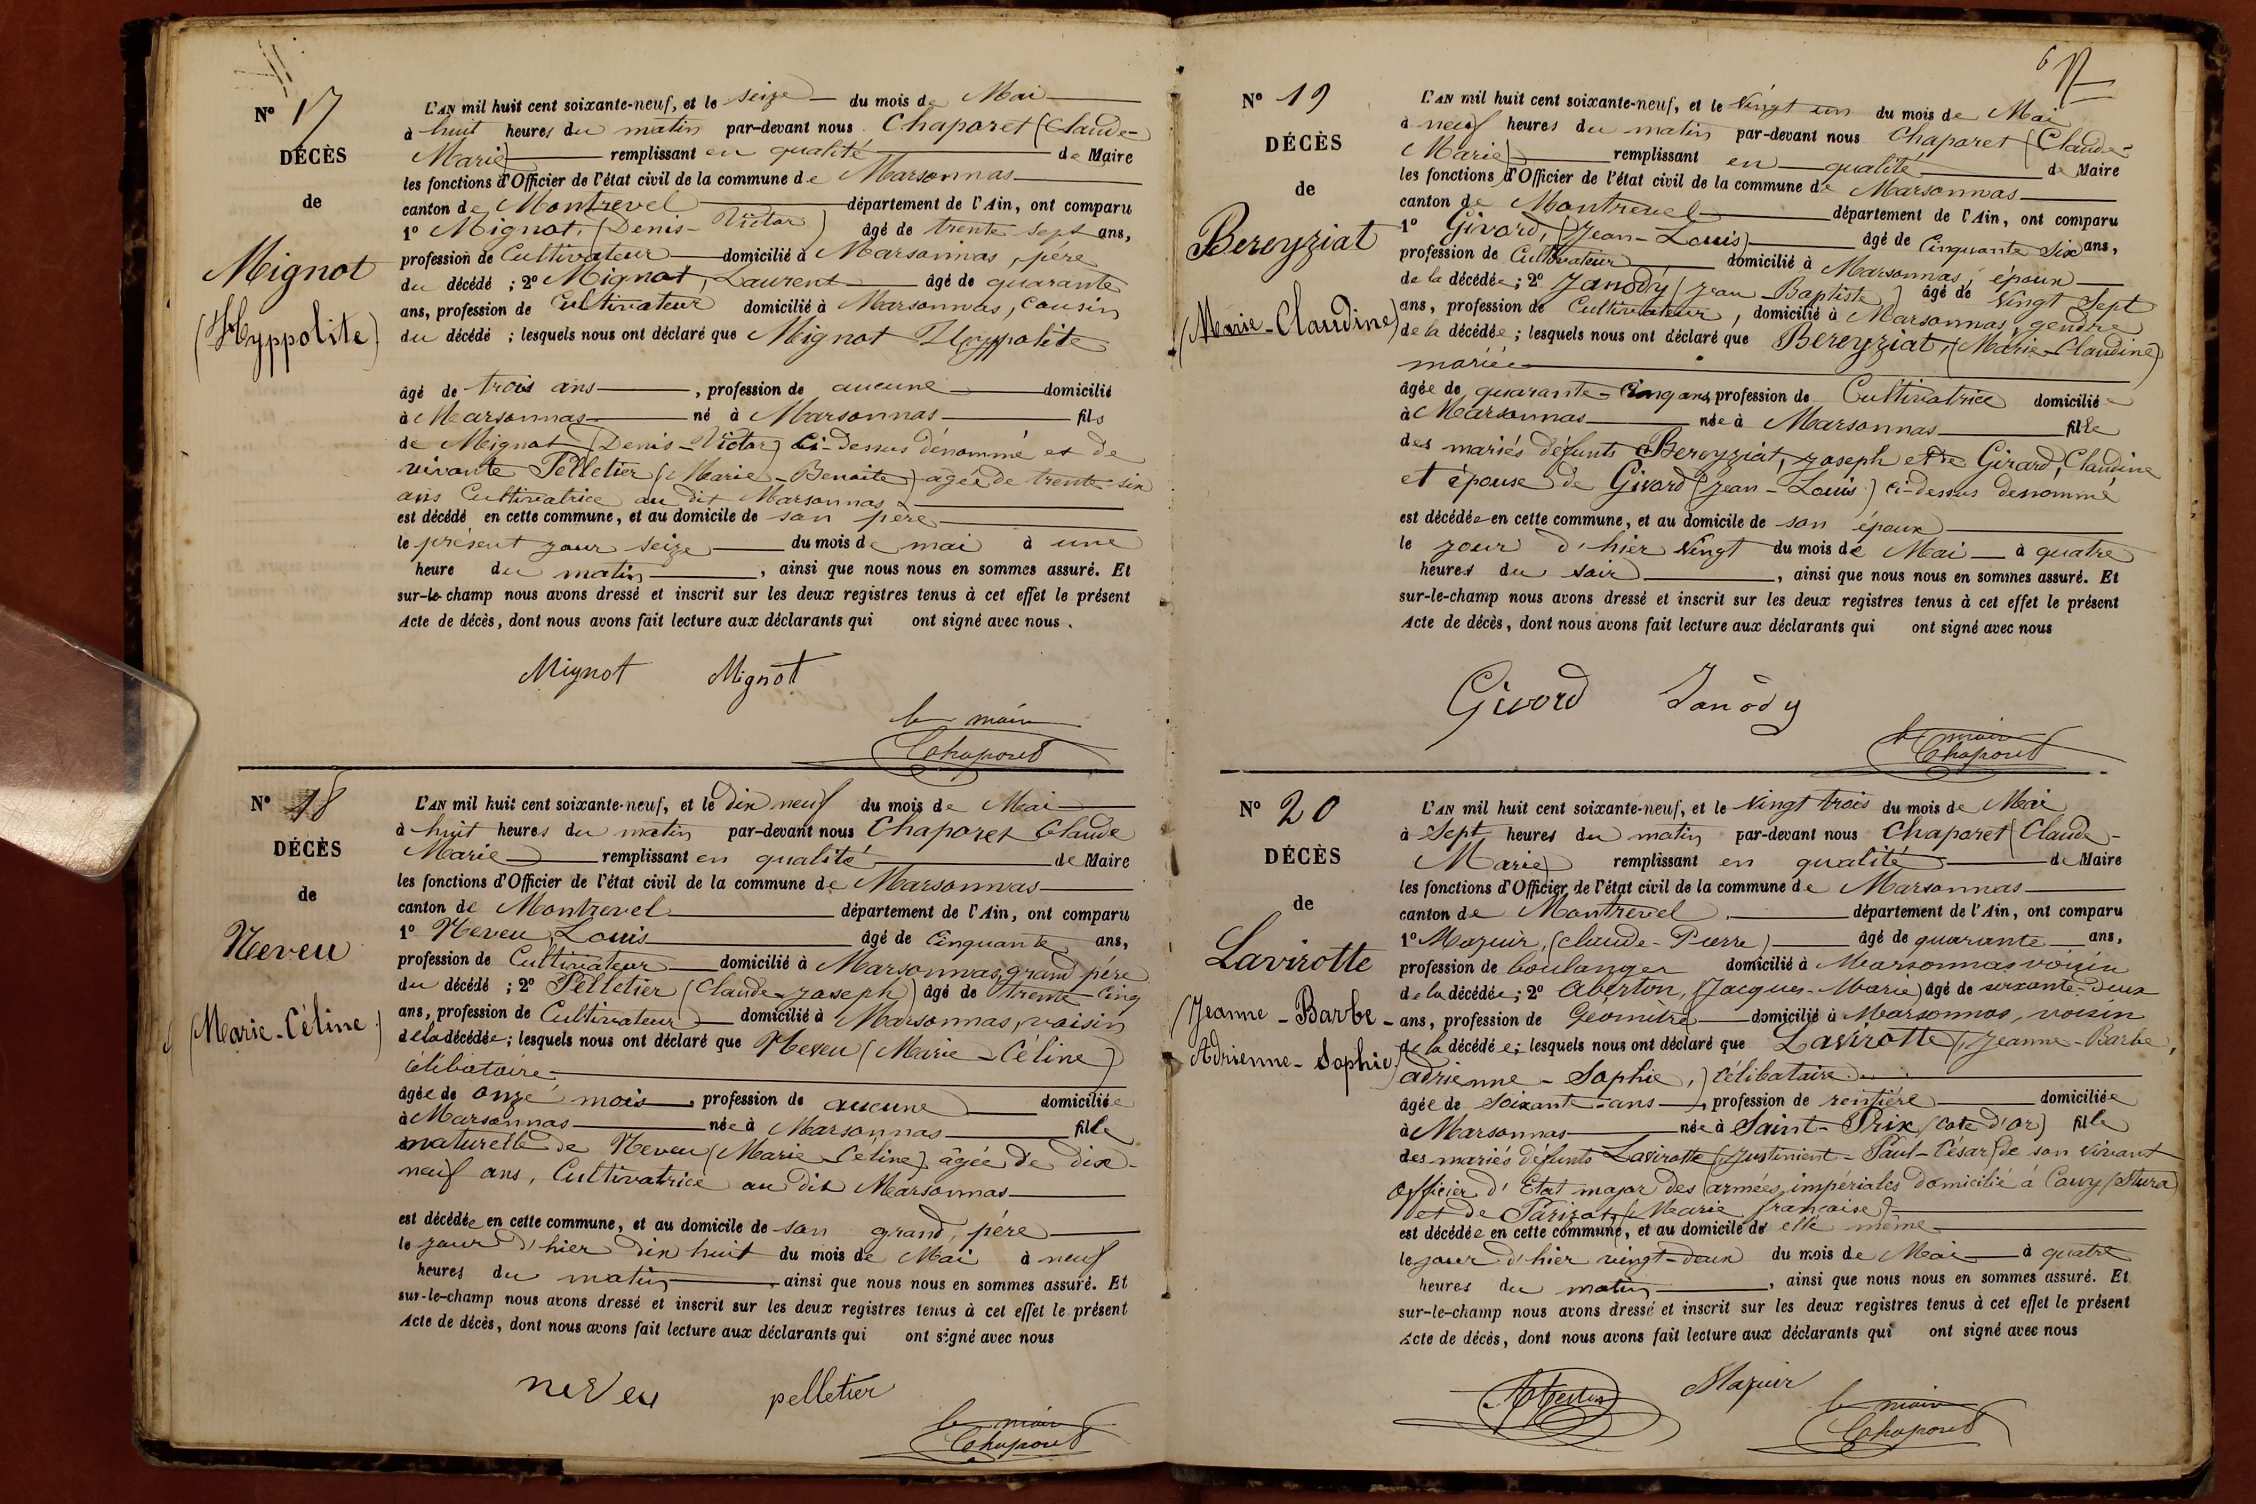 N° 17
DÉCÈS
de
Mignot
(Hyppolite)
L'AN mil huit cent soixante-neuf, et le seize du mois de Mai
à huit heures du matin par-devant nous Chaporet (Claude-
Marie) remplissant en qualité de Maire
les fonctions d'Officier de l'état civil de la commune de Marsonnas
canton de Montrevel département de l'Ain, ont comparu
1° Mignot, (Denis-Victor) âgé de trente sept ans,
profession de Cultivateur domicilié à Marsonnas, père
du décédé ; 2° Mignot, Laurent âgé de quarante
ans, profession de Cultivateur domicilié à Marsonnas, cousin
du décédé ; lesquels nous ont déclaré que Mignot Hyppolite
âgé de trois ans, profession de aucune domicilié
à Marsonnas né à Marsonnas fils
de Mignot (Denis-Victor) ci-dessus dénommé et de
vivante Pelletier (Marie-Benoite) âgée de trente-six
ans Cultivatrice au dit Marsonnas
est décédé en cette commune, et au domicile de son père
le présent jour seize du mois de mai à une
heure du matin, ainsi que nous nous en sommes assuré. Et
sur-le-champ nous avons dressé et inscrit sur les deux registres tenus à cet effet le présent
Acte de décès, dont nous avons fait lecture aux déclarants qui ont signé avec nous.
Mignot Mignot
le maire
Chaporet
N° 18
DÉCÈS
de
Neveu
(Marie-Céline)
L'AN mil huit cent soixante-neuf, et le dix neuf du mois de Mai
à huit heures du matin par-devant nous Chaporet Claude
Marie remplissant en qualité de Maire
les fonctions d'Officier de l'état civil de la commune de Marsonnas
canton de Montrevel département de l'Ain, ont comparu
1° Neveu, Louis âgé de Cinquante ans,
profession de Cultivateur domicilié à Marsonnas, grand père
du décédé ; 2° Pelletier (Claude-Joseph) âgé de trente-cinq
ans, profession de Cultivateur domicilié à Marsonnas, voisin
de la décédée ; lesquels nous ont déclaré que Neveu (Marie-Céline)
célibataire
âgée de onze mois, profession de aucune domiciliée
à Marsonnas née à Marsonnas fille
naturelle de Neveu (Marie Céline) âgée de dix-
neuf ans, Cultivatrice au dit Marsonnas
est décédée en cette commune, et au domicile de son grand, père
le jour d'hier dix huit du mois de Mai à neuf
heures du matin, ainsi que nous nous en sommes assuré. Et
sur-le-champ nous avons dressé et inscrit sur les deux registres tenus à cet effet le présent
Acte de décès, dont nous avons fait lecture aux déclarants qui ont signé avec nous
neveu pelletier
le maire
Chaporet
N° 19
DÉCÈS
de
Bereyziat
(Marie-Claudine)
L'AN mil huit cent soixante-neuf, et le Vingt un du mois de Mai
à neuf heures du matin par-devant nous Chaporet (Claude-
Marie) remplissant en qualité de Maire
les fonctions d'Officier de l'état civil de la commune de Marsonnas
canton de Montrevel département de l'Ain, ont comparu
1° Givord, (Jean-Louis) âgé de Cinquante Six ans,
profession de Cultivateur domicilié à Marsonnas, époux
de la décédée ; 2° Janody (Jean-Baptiste) âgé de Vingt Sept
ans, profession de Cultivateur, domicilié à Marsonnas, gendre
de la décédée ; lesquels nous ont déclaré que Bereyziat, (Marie-Claudine)
mariée
âgée de quarante-Cinq ans, profession de Cultivatrice domiciliée
à Marsonnas née à Marsonnas fille
des mariés défunts Bereyziat, Joseph et de Girard, Claudine
et épouse de Givord (Jean-Louis) ci-dessus denommé
est décédée en cette commune, et au domicile de son époux
le jour d'hier Vingt du mois de Mai à quatre
heures du soir, ainsi que nous nous en sommes assuré. Et
sur-le-champ nous avons dressé et inscrit sur les deux registres tenus à cet effet le présent
Acte de décès, dont nous avons fait lecture aux déclarants qui ont signé avec nous
Givord Janody
le maire
Chaporet
N° 20
DÉCÈS
de
Lavirotte
(Jeanne-Barbe-
Adrienne-Sophie)
L'AN mil huit cent soixante-neuf, et le Vingt trois du mois de Mai
à Sept heures du matin par-devant nous Chaporet (Claude-
Marie) remplissant en qualité de Maire
les fonctions d'Officier de l'état civil de la commune de Marsonnas
canton de Montrevel département de l'Ain, ont comparu
1° Mazuir, (Claude-Pierre) âgé de quarante ans,
profession de boulanger domicilié à Marsonnas voisin
de la décédée ; 2° Aberton, (Jacques-Marie) âgé de soixante-deux
ans, profession de Géomètre domicilié à Marsonnas, voisin
de la décédée ; lesquels nous ont déclaré que Lavirotte (Jeanne-Barbe,
adrienne-Sophie,) célibataire
âgée de Soixante ans, profession de rentière domiciliée
à Marsonnas née à Saint-Prix (Cote d'or) fille
des mariés défunts Lavirotte (Justinient-Paul-César) de son vivant
Officier d'Etat major des armées impériales domicilié à Couy (Stura)
et de Parizot (Marie française)
est décédée en cette commune, et au domicile de elle même
le jour d'hier vingt-deux du mois de Mai à quatre
heures du matin, ainsi que nous nous en sommes assuré. Et
sur-le-champ nous avons dressé et inscrit sur les deux registres tenus à cet effet le présent
Acte de décès, dont nous avons fait lecture aux déclarants qui ont signé avec nous
Aberton Mazuir
le maire
Chaporet